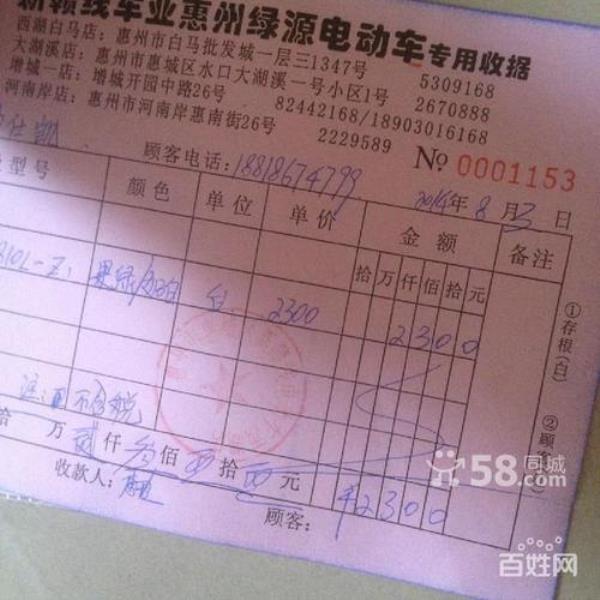 新赣线车业惠州绿源电动车专用收据
西湖白马店：惠州市白马批发城一层三1347号 5309168
大湖溪店：惠州市惠城区水口大湖溪一号小区1号 2670888
增城一店：增城开园中路26号 82442168/18903016168
河南岸店：惠州市河南岸惠南街26号 2229589
仕凯 顾客电话：18818674799 № 0001153
2014年8月3日
型号 颜色 单位 单价 金额 备注
拾万仟佰拾元
810L-Z 果绿/ 白 台 2300 2300
注： 不含税
拾 万 贰仟叁佰 零拾 零元 ¥2300
收款人： 顾客：
①存根(白)
②顾
58同城
百姓网